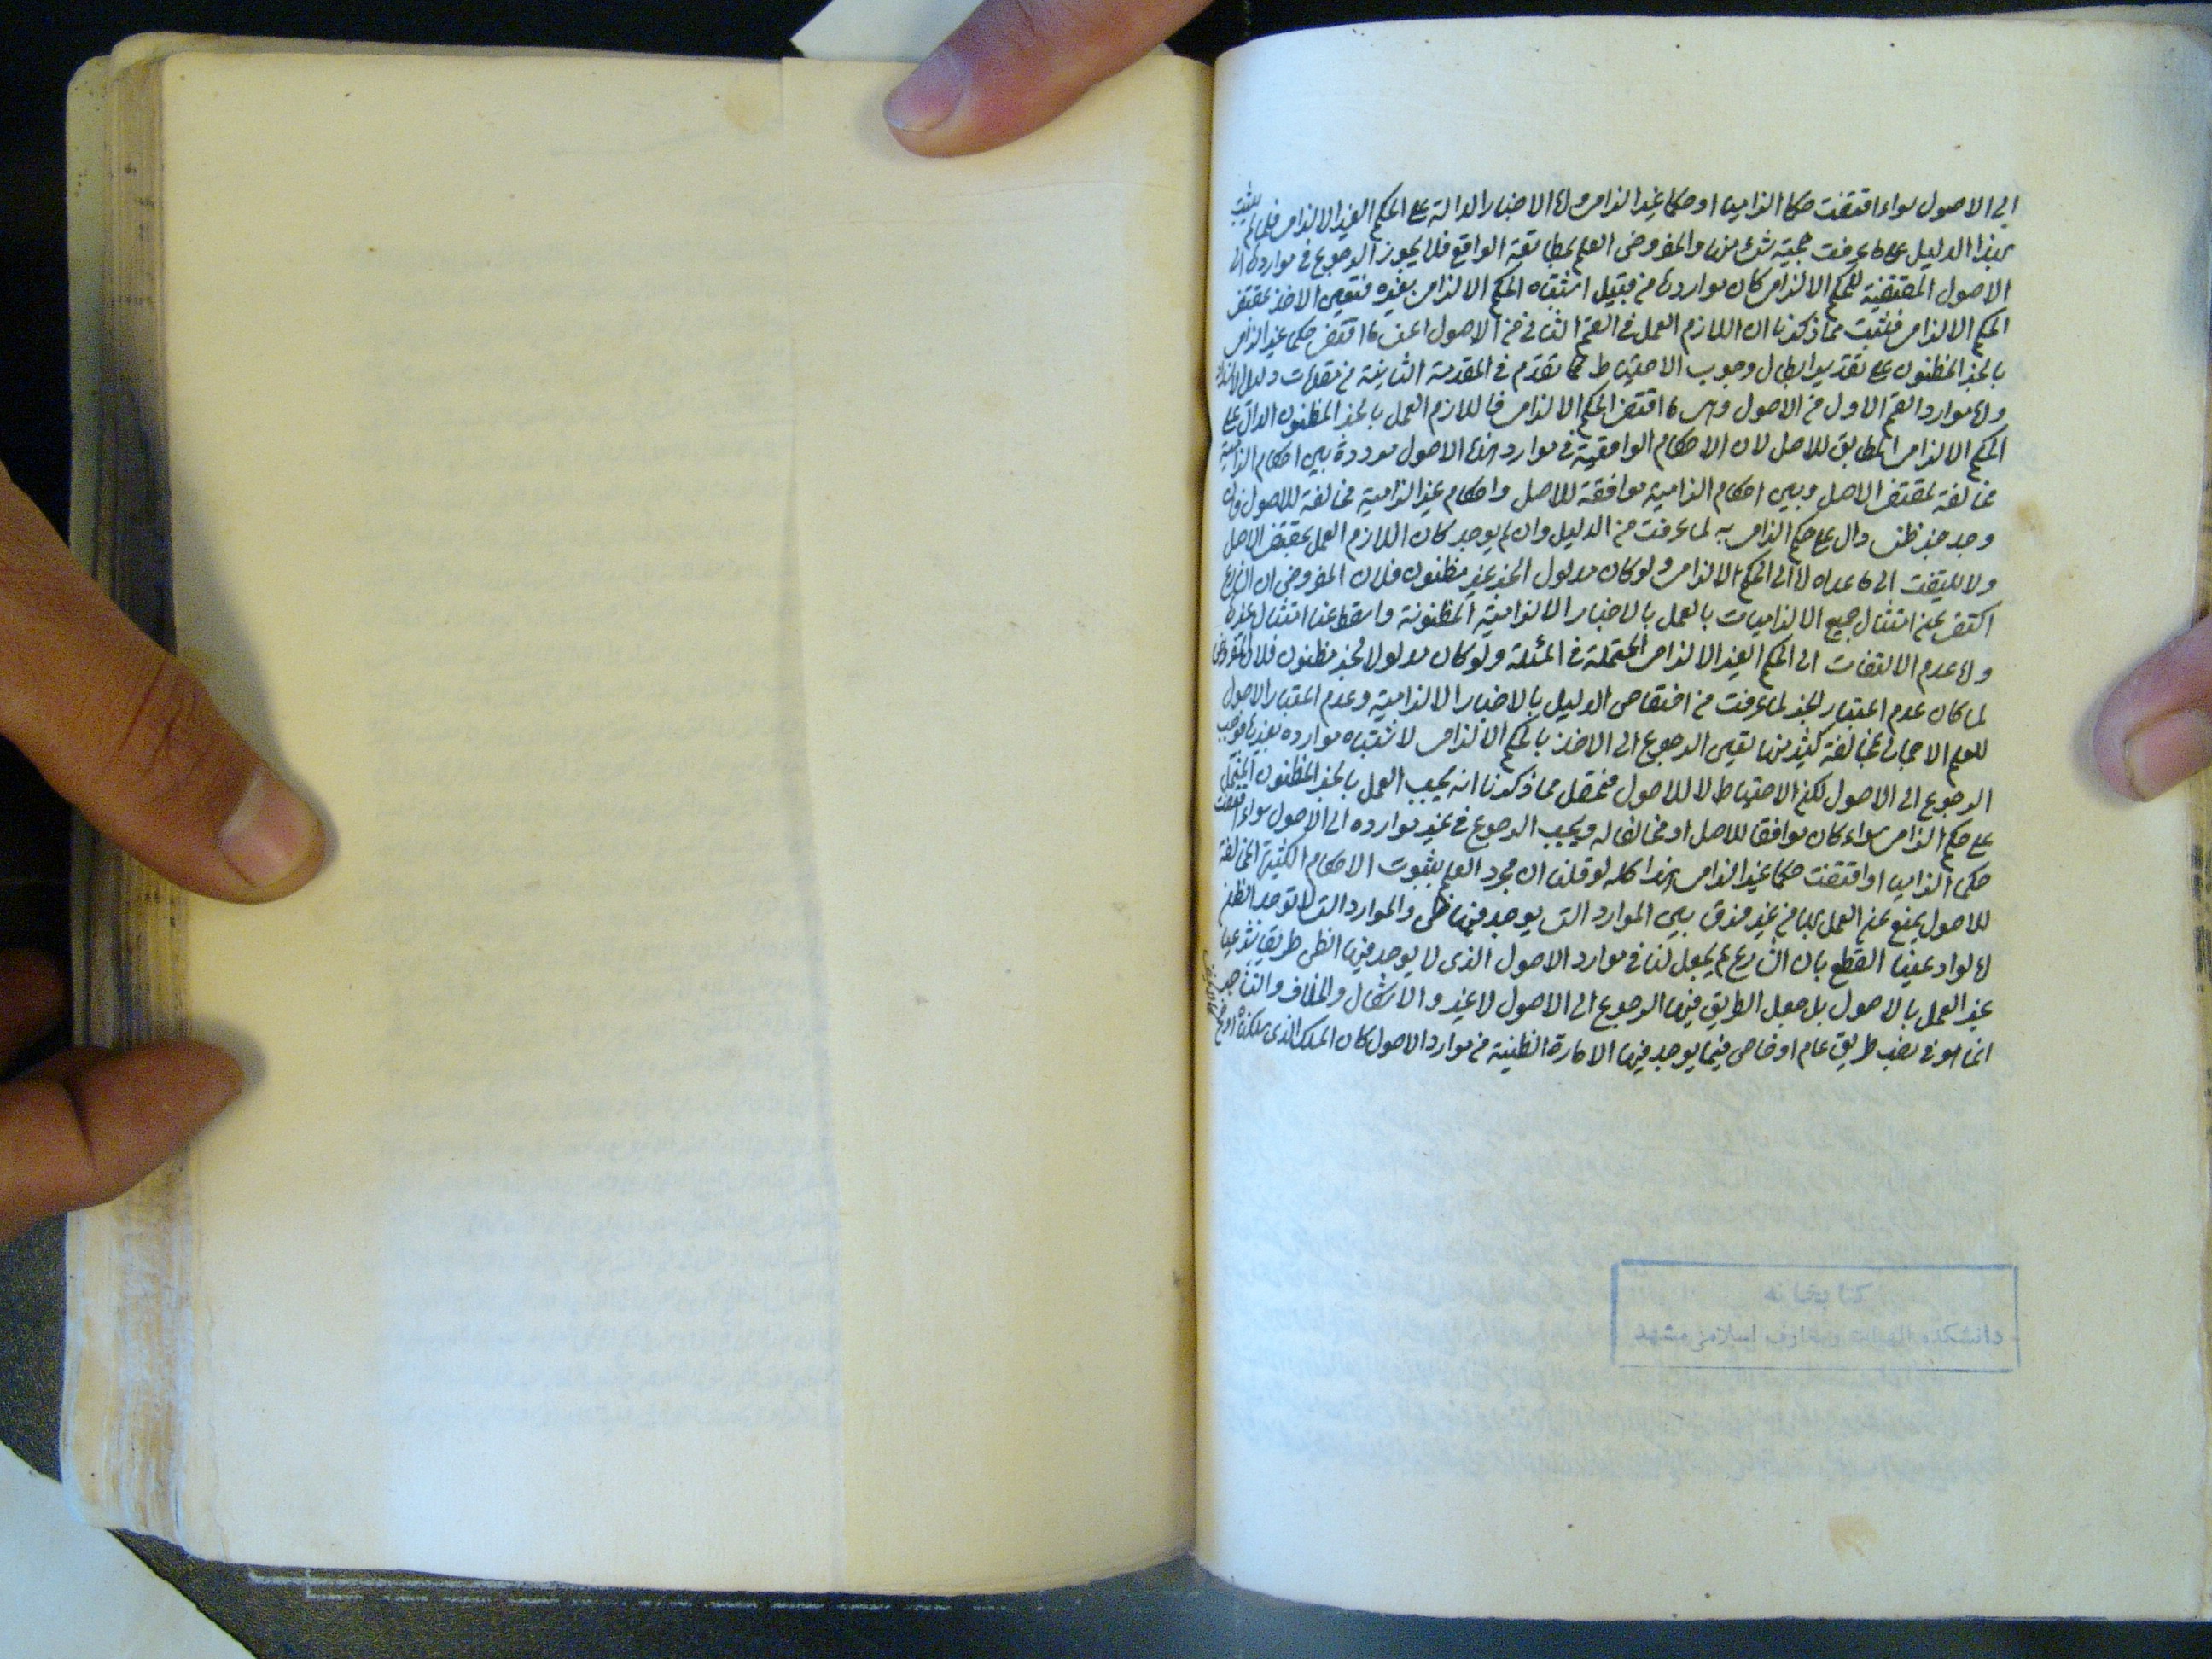 الى الاصول سواء اقتضت حكما الزاميا او حكما غير الزامى واما الاخبار الدالة على الحكم الغير الالزامى فلما لم يثبت
بهذا الدليل على ما عرفت حجية شىء منها والمفروض العلم بمطابقة الواقع فلا يجوز الرجوع فى مواردها الى
الاصول المقتضية للحكم الالزامى كان مواردها من قبيل اشتباه الحكم الالزامى بغيره فتعين الاخذ بمقتضى
الحكم الالزامى فثبت مما ذكرنا ان اللازم العمل فى القسم الثانى من الاصول اعنى ما اقتضى حكما غير الزامى
بالخبر المظنون على تقدير ابطال وجوب الاحتياط كما تقدم فى المقدمة الثانية من مقدمات دليل الانسداد
واما موارد القسم الاول من الاصول وهى ما اقتضى الحكم الالزامى فاللازم العمل بالخبر المظنون الدال على
الحكم الالزامى المطابق للاصل لان الاحكام الواقعية فى موارد هذه الاصول مرددة بين احكام الزامية
مخالفة لمقتضى الاصل وبين احكام الزامية موافقة للاصل واحكام غير الزامية مخالفة للاصول فان
وجد خبر ظنى دال على حكم الزامى به لما عرفت من الدليل وان لم يوجد كان اللازم العمل بمقتضى الاصل
ولا يلتفت الى ما عداه اما الى الحكم الالزامى ولو كان مدلول الخبر غير مظنون فلان المفروض ان الشارع
اكتفى عن امتثال جميع الالزاميات بالعمل بالاخبار الالزامية المظنونة واسقط عنا امتثال غيرها
واما عدم الالتفات الى الحكم الغير الالزامى المحتملة فى المسئلة ولو كان مدلولا لخبر مظنون فلان المفروض
لما كان عدم اعتبار الخبر لما عرفت من اختصاص الدليل بالاخبار الالزامية وعدم اعتبار الاصول
للعلم الاجمالى بمخالفة كثير منها تعين الرجوع الى الاخذ بالحكم الالزامى لاشتباه موارده بغيرها فوجب
الرجوع الى الاصول لكن الاحتياط لا للاصول فتحصل مما ذكرنا انه يجب العمل بالخبر المظنون المشتمل
على حكم الزامى سواء كان موافقا للاصل او مخالفا له ويجب الرجوع فى غير موارده الى الاصول سواء اقتضت
حكما الزاميا او اقتضت حكما غير الزامى هذا كله لو قلنا ان مجرد العلم بثبوت الاحكام الكثيرة المخالفة
للاصول يمنع عن العمل بها من غير فرق بين الموارد التى يوجد فيها ظن والموارد التى لا توجد الظن
اما لو ادعينا القطع بان الشارع لم يجعل لنا فى موارد الاصول الذى لا يوجد فيها الظن طريقا شرعيا
غير العمل بالاصول بل جعل الطريق فيها الرجوع الى الاصول لا غير والاشكال والخلاف والتشاجر
انما هو فى نصب طريق عام او خاص فيما يوجد فيها الامارة الظنية من موارد الاصول كان المسلك الذى سلكناه اوضح
كتابخانه
دانشكده الهيات و معارف اسلامى مشهد